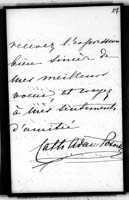 17
recevez l'expression
bien sincère de
mes meilleurs
voeux et croyez
à mes sentiments
d'amitié